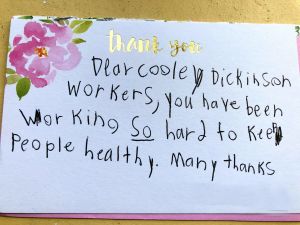 thank you
Dear cooley Dickinson
workers, you have been
working So hard to keep
People healthy. Many thanks